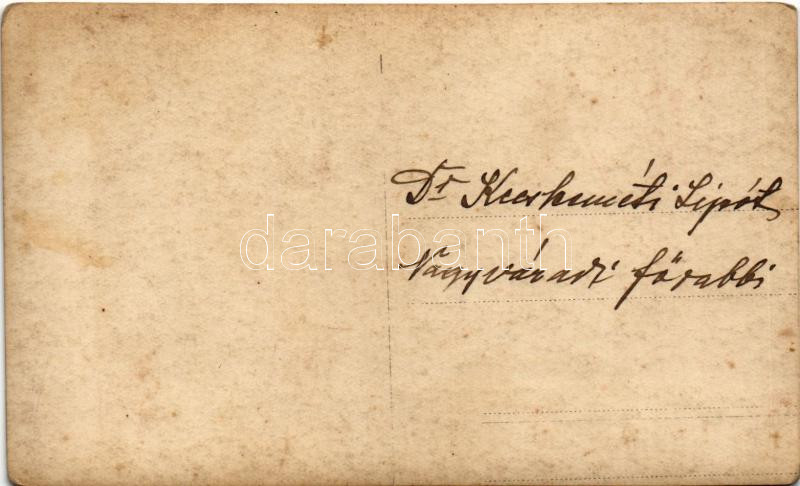 Dr Kecskeméti Lipót
Nagyváradi főrabbi
darabanth